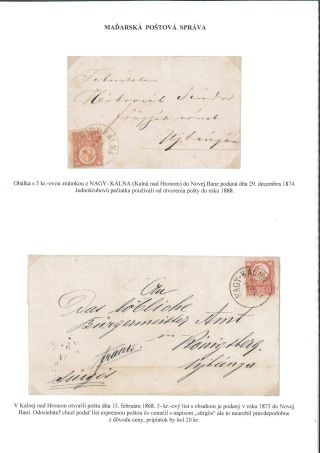 MAĎARSKÁ POŠTOVÁ SPRÁVA
Sándor
Ujbánya
Obálka s 5 kr.-ovou známkou z NAGY- KÁLNA (Kalná nad Hronom) do Novej Bane podaná dňa 29. decembra 1874.
Jednokruhovú pečiatku používali od otvorenia pošty do roku 1888.
NAGY-KÁLNA
An
Das löbliche
Bürgermeister Amt
in
Königsberg
franco
Ujbánya
Sürgős
V Kalnej nad Hronom otvorili poštu dňa 15. februára 1868. 5- kr.-ový list s obsahom je podaný v roku 1873 do Novej
Bani. Odosielateľ chcel podať list expresnou poštou čo označil s nápisom „sürgős" ale to neurobil pravdepodobne
z dôvodu ceny, príplatok by bol 20 kr.